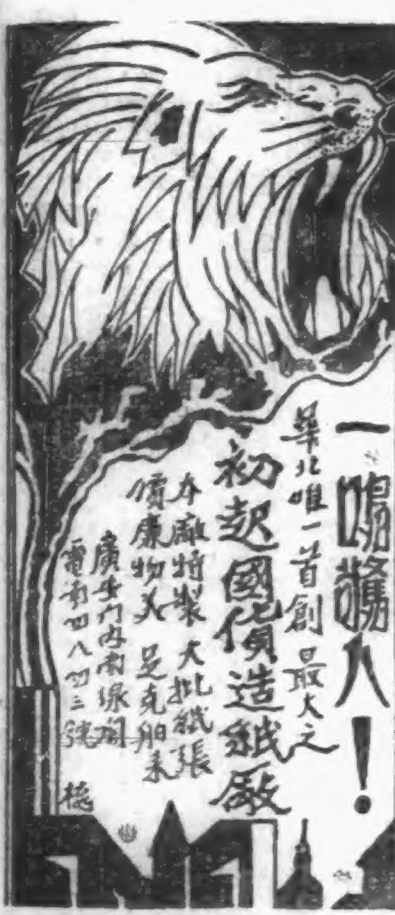 一鳴驚人！
華北唯一首創最大之
初起國貨造紙廠
本廠特製大批紙張
價廉物美 足克舶來
廣安門內南線閣
電南四八四三號